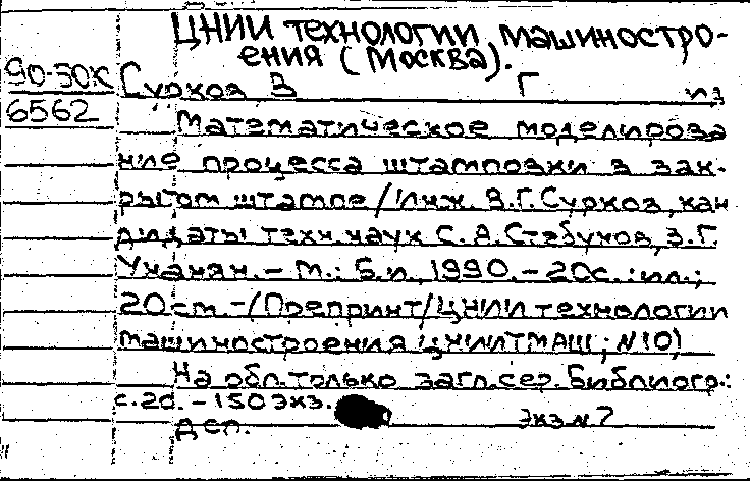 ЦНИИ технологии машиностро-
ения (Москва).
90-30К
Сурков В Г из
6562
Математическое моделирова
ние процесса штамповки в зак-
рытом штампе / Инж. В.Г. Сурков, кан
дидаты техн. наук С. А. Стебунов, В.Г.
Унанян. – М.: Б.и., 1990. – 20с. : ил.;
20 см – (Препринт / ЦНИИ технологии
машиностроения ЦНИИТМАШ ; N 10)
На обл. только загл. сер. Библиогр.:
с. 20. – 150 экз.
Деп. Экз N 7